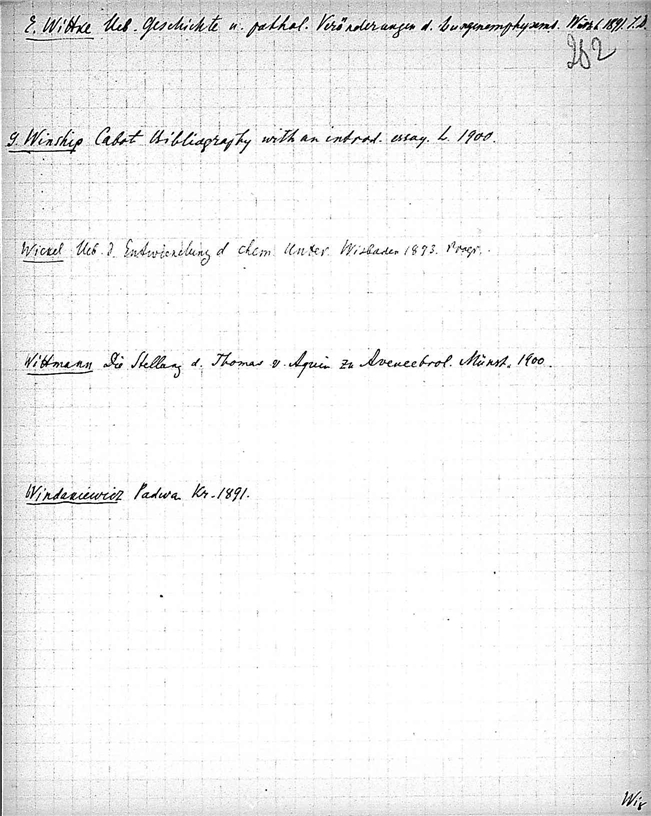 E. Wittke Ueb. Geschichte u. pathol. Veränderungen d. Lungenemphysems. Würzb. 1891. I.D.
262
G. Winship Cabot Bibliography with an introd. essay. L. 1900.
Wickel Ueb. d. Entwickelung d chem. Unter. Wisbaden 1873. Progr.
Wittmann Die Stellung d. Thomas v. Aquin zu Avencebrol. Münst. 1900.
Windakiewicz Padwa Kr. 1891.
Wis